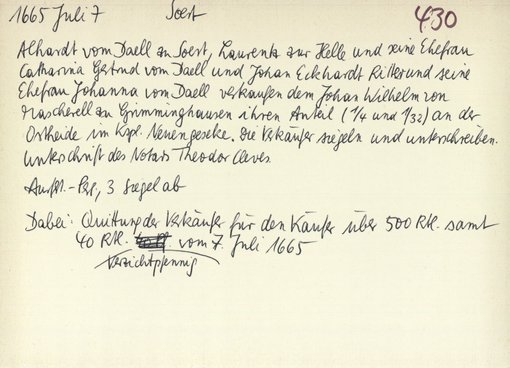 1665 Juli 7 Soest 430
Alhardt vom Daell zu Soest, Laurentz zur Helle und seine Ehefrau
Catharina Gertrud vom Daell und Johan Eckhardt Ritter und seine
Ehefrau Johanna vom Daell verkaufen dem Johan Wilhelm von
Mascherell zu Grimminghausen ihren Anteil (1/4 und 1/32) an der
Ostheide im Kspl. Neuengeseke. Die Verkäufer siegeln und unterschreiben.
Unterschrift des Notars Theodor Cleves.
Ausf. - Perg., 3 Siegel ab
Dabei: Quittung der Verkäufer für den Käufer über 500 Rtl. samt
40 Rtl. vom 7. Juli 1665
Verzichtpfennig